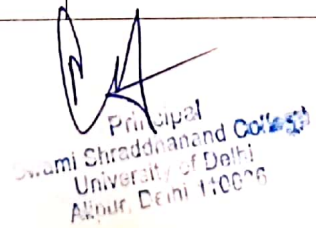 Principal
Swami Shraddhanand College
University of Delhi
Alipur, Delhi 110036